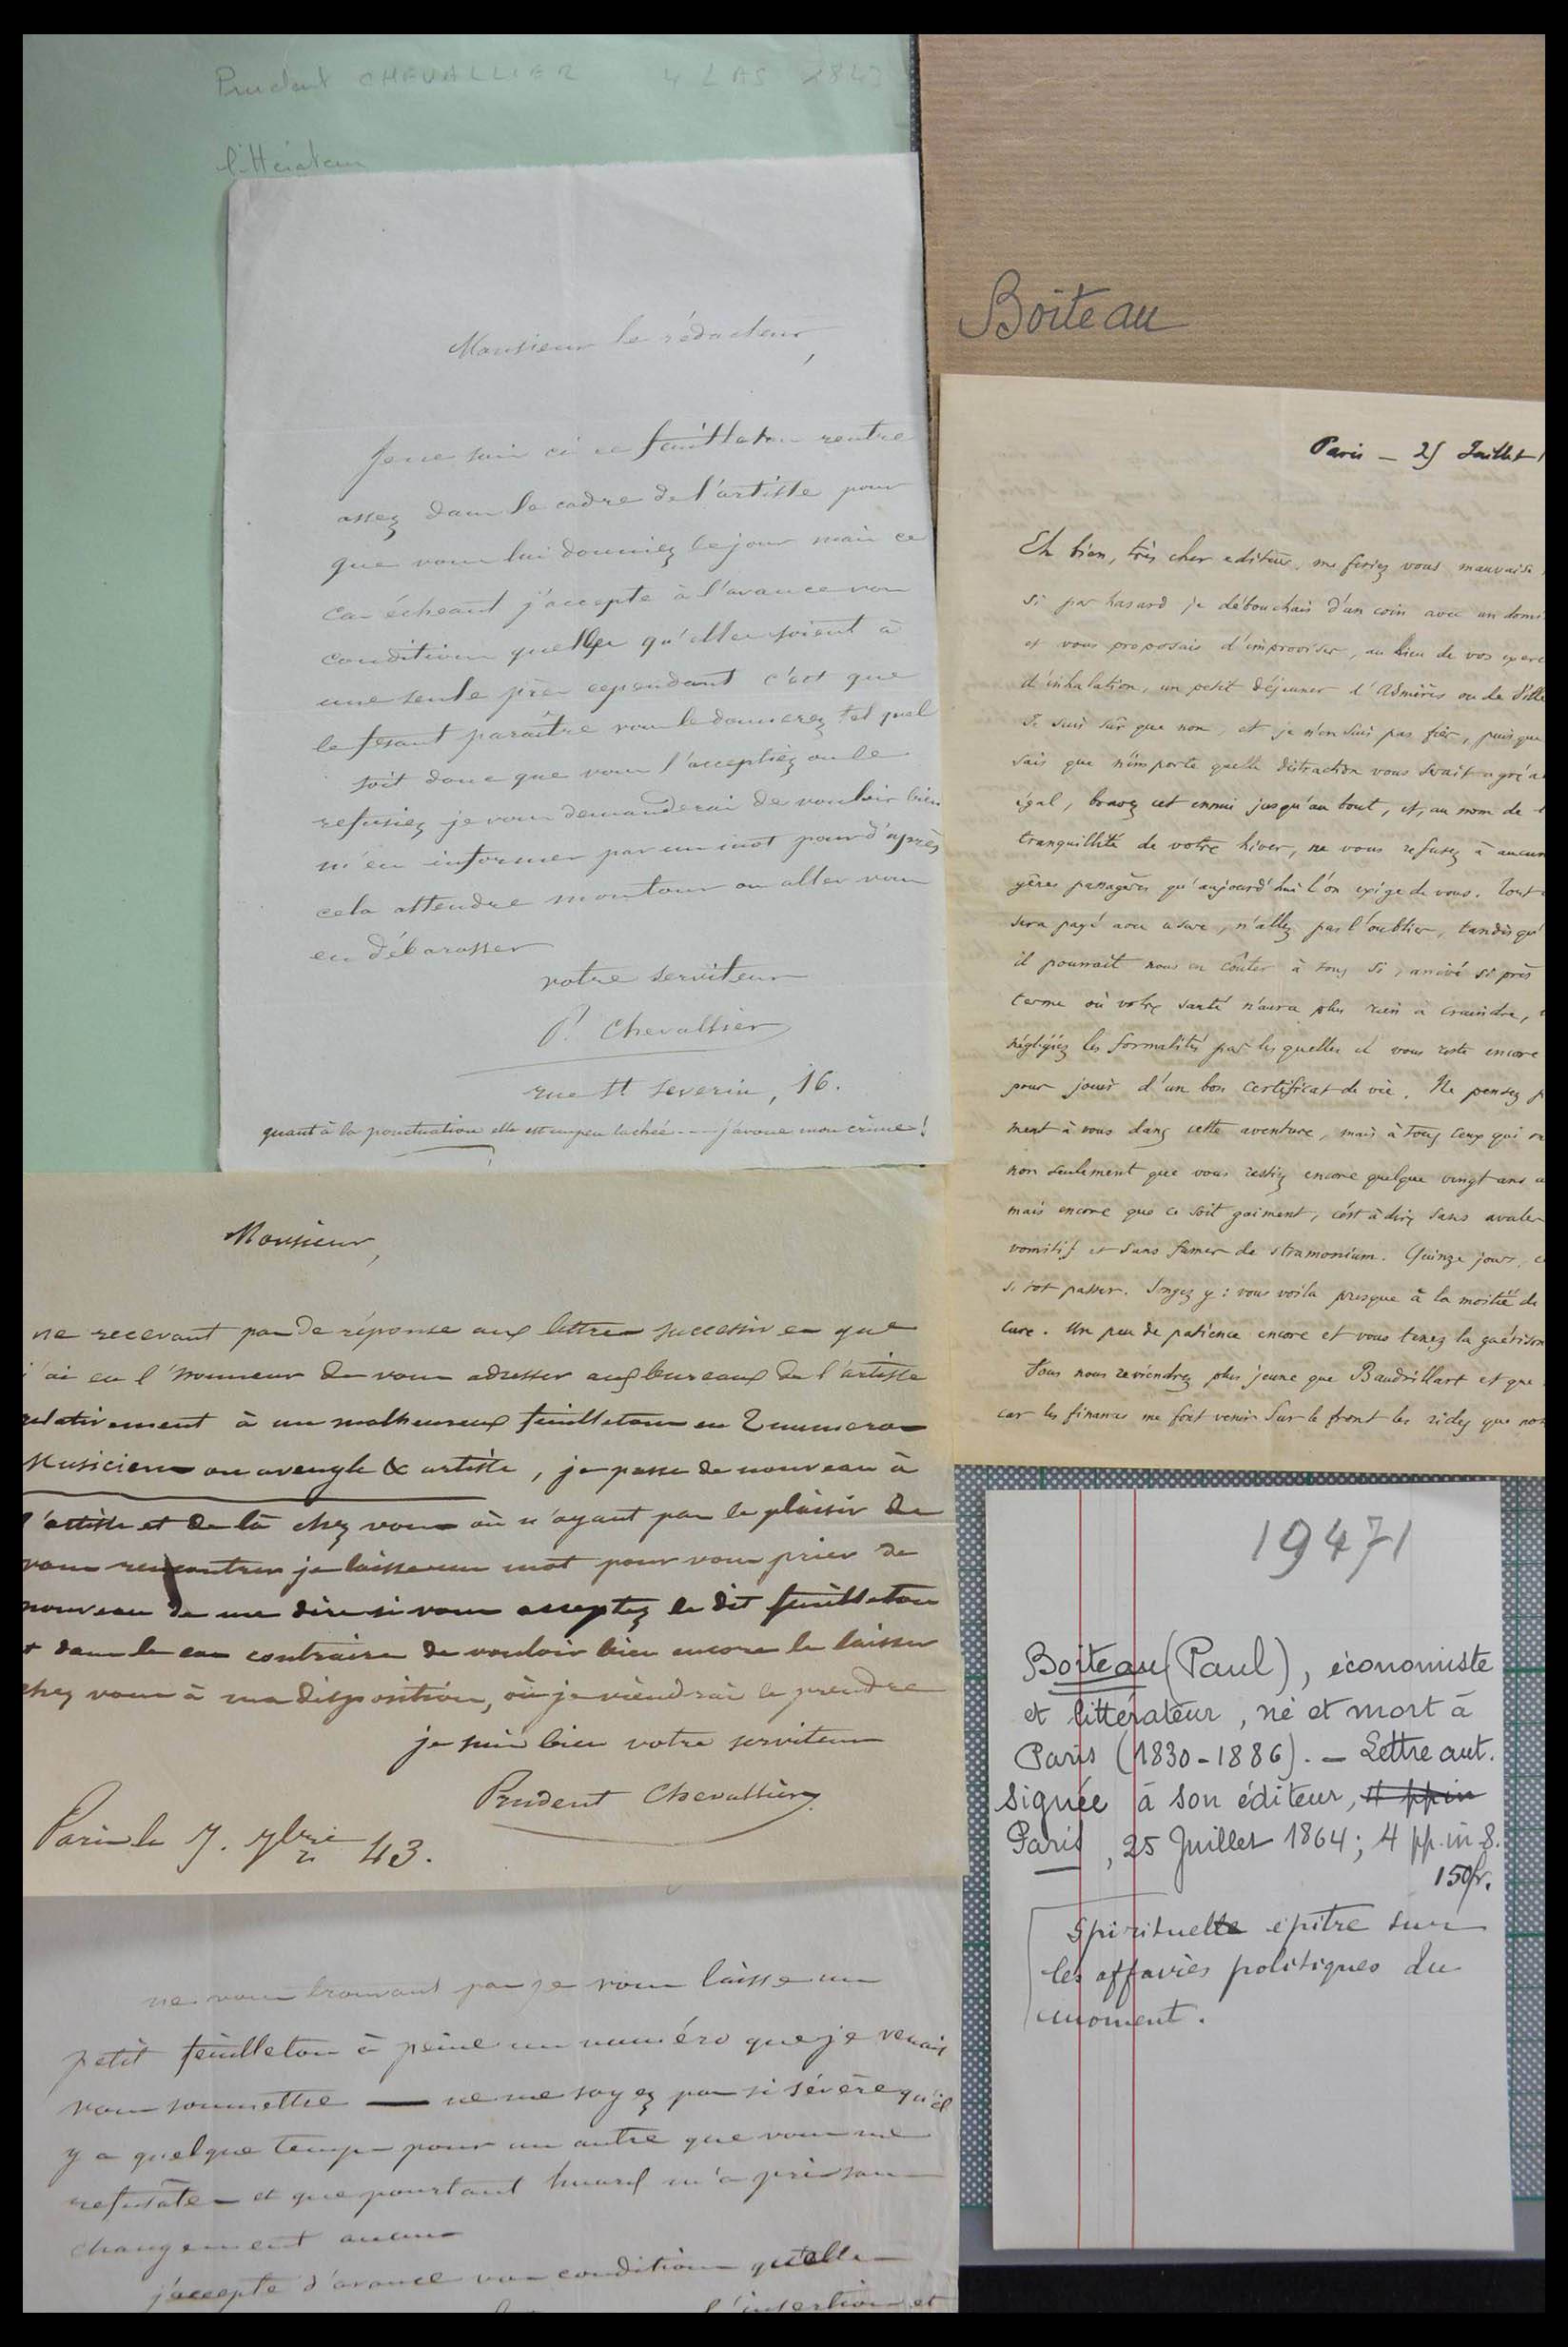 Prudent CHEVALLIER 4 LAS 1843
littérateur
Monsieur le rédacteur,
Je ne sais si ce feuilleton rentre
assez dans le cadre de l'artiste pour
que vous lui donniez le jour mais ce
cas échéant j'accepte à l'avance vos
conditions quelles qu'elles soient à
une seule près cependant c'est que
le fesant paraître vous le donnerez tel quel
soit donc que vous l'acceptiez ou le
refusiez je vous demanderai de vouloir bien
m'en informer par un mot pour d'après
cela attendre mon tour ou aller vous
en débarasser
votre serviteur
P. Chevallier
rue St Severin, 16.
quant à la ponctuation elle est un peu lachée --- j'avoue mon crime!
Monsieur,
ne recevant pas de réponse aux lettres successives que
j'ai eu l'honneur de vous adresser aux bureaux de l'artiste
relativement à un malheureux feuilleton en 2 numeros
Musiciens ou aveugle & artiste, je passe de nouveau à
l'artiste et de là chez vous où n'ayant pas le plaisir de
vous rencontrer je laisse un mot pour vous prier de
nouveau de me dire si vous acceptez le dit feuilleton
et dans le cas contraire de vouloir bien encore le laisser
chez vous à ma disposition, où je viendrai le prendre
je suis bien votre serviteur
Prudent Chevallier
Paris le 7. 43.
ne vous trouvant pas je vous laisse un
petit feuilleton à peine un numéro que je venais
vous soumettre — ne me soyez pas si sévère qu'il
y a quelque temps pour un autre que vous me
refusâtes et que pourtant m'a pris sans
changement aucun
j'accepte d'avance vos conditions qu'elles
l'insertion et
Boiteau
Paris — 25 Juillet 1
Eh bien, très cher editeur, me feriez vous mauvaise
si par hasard je débouchais d'un coin avec un
et vous proposais d'improviser, au lieu de vos
d'inhalation, un petit déjeuner d'Asnières ou de
Je suis sûr que non, et je n'en suis pas fier, puis que
sais que n'importe quelle distraction vous serait
égal, bravez cet ennui jusqu'au bout, et, au nom de
tranquillité de votre hiver, ne vous refusez à
gênes passagères qu'aujourd'hui l'on exige de vous. Tout
sera payé avec usure, n'allez pas l'oublier, tandis qu'
il pourrait nous en coûter à tous si, arrivé si près
terme où votre santé n'aura plus rien à craindre,
négligiez les formalités par les quelles il vous reste encore
pour jouir d'un bon certificat de vie. Ne pensez
ment à vous dans cette aventure, mais à tous ceux qui
non seulement que vous restiez encore quelque vingt ans
mais encore que ce soit gaiment, c'est à dire sans avaler
vomitif et sans fumer de stramonium. Quinze jours,
si tot passer. Songez y : vous voilà presque à la moitié de
cure. Un peu de patience encore et vous tenez la guérison
Vous nous reviendrez plus jeune que Baudrillart et que
car les finances me font venir sur le front les rides que
19471
Boiteau (Paul), économiste
et littérateur, né et mort à
Paris (1830-1886). — Lettre aut.
signée à son éditeur, 4 pp in
Paris, 25 Juillet 1864; 4 pp. in 8.
150fr.
Spirituelle épitre sur
les affaires politiques du
moment.